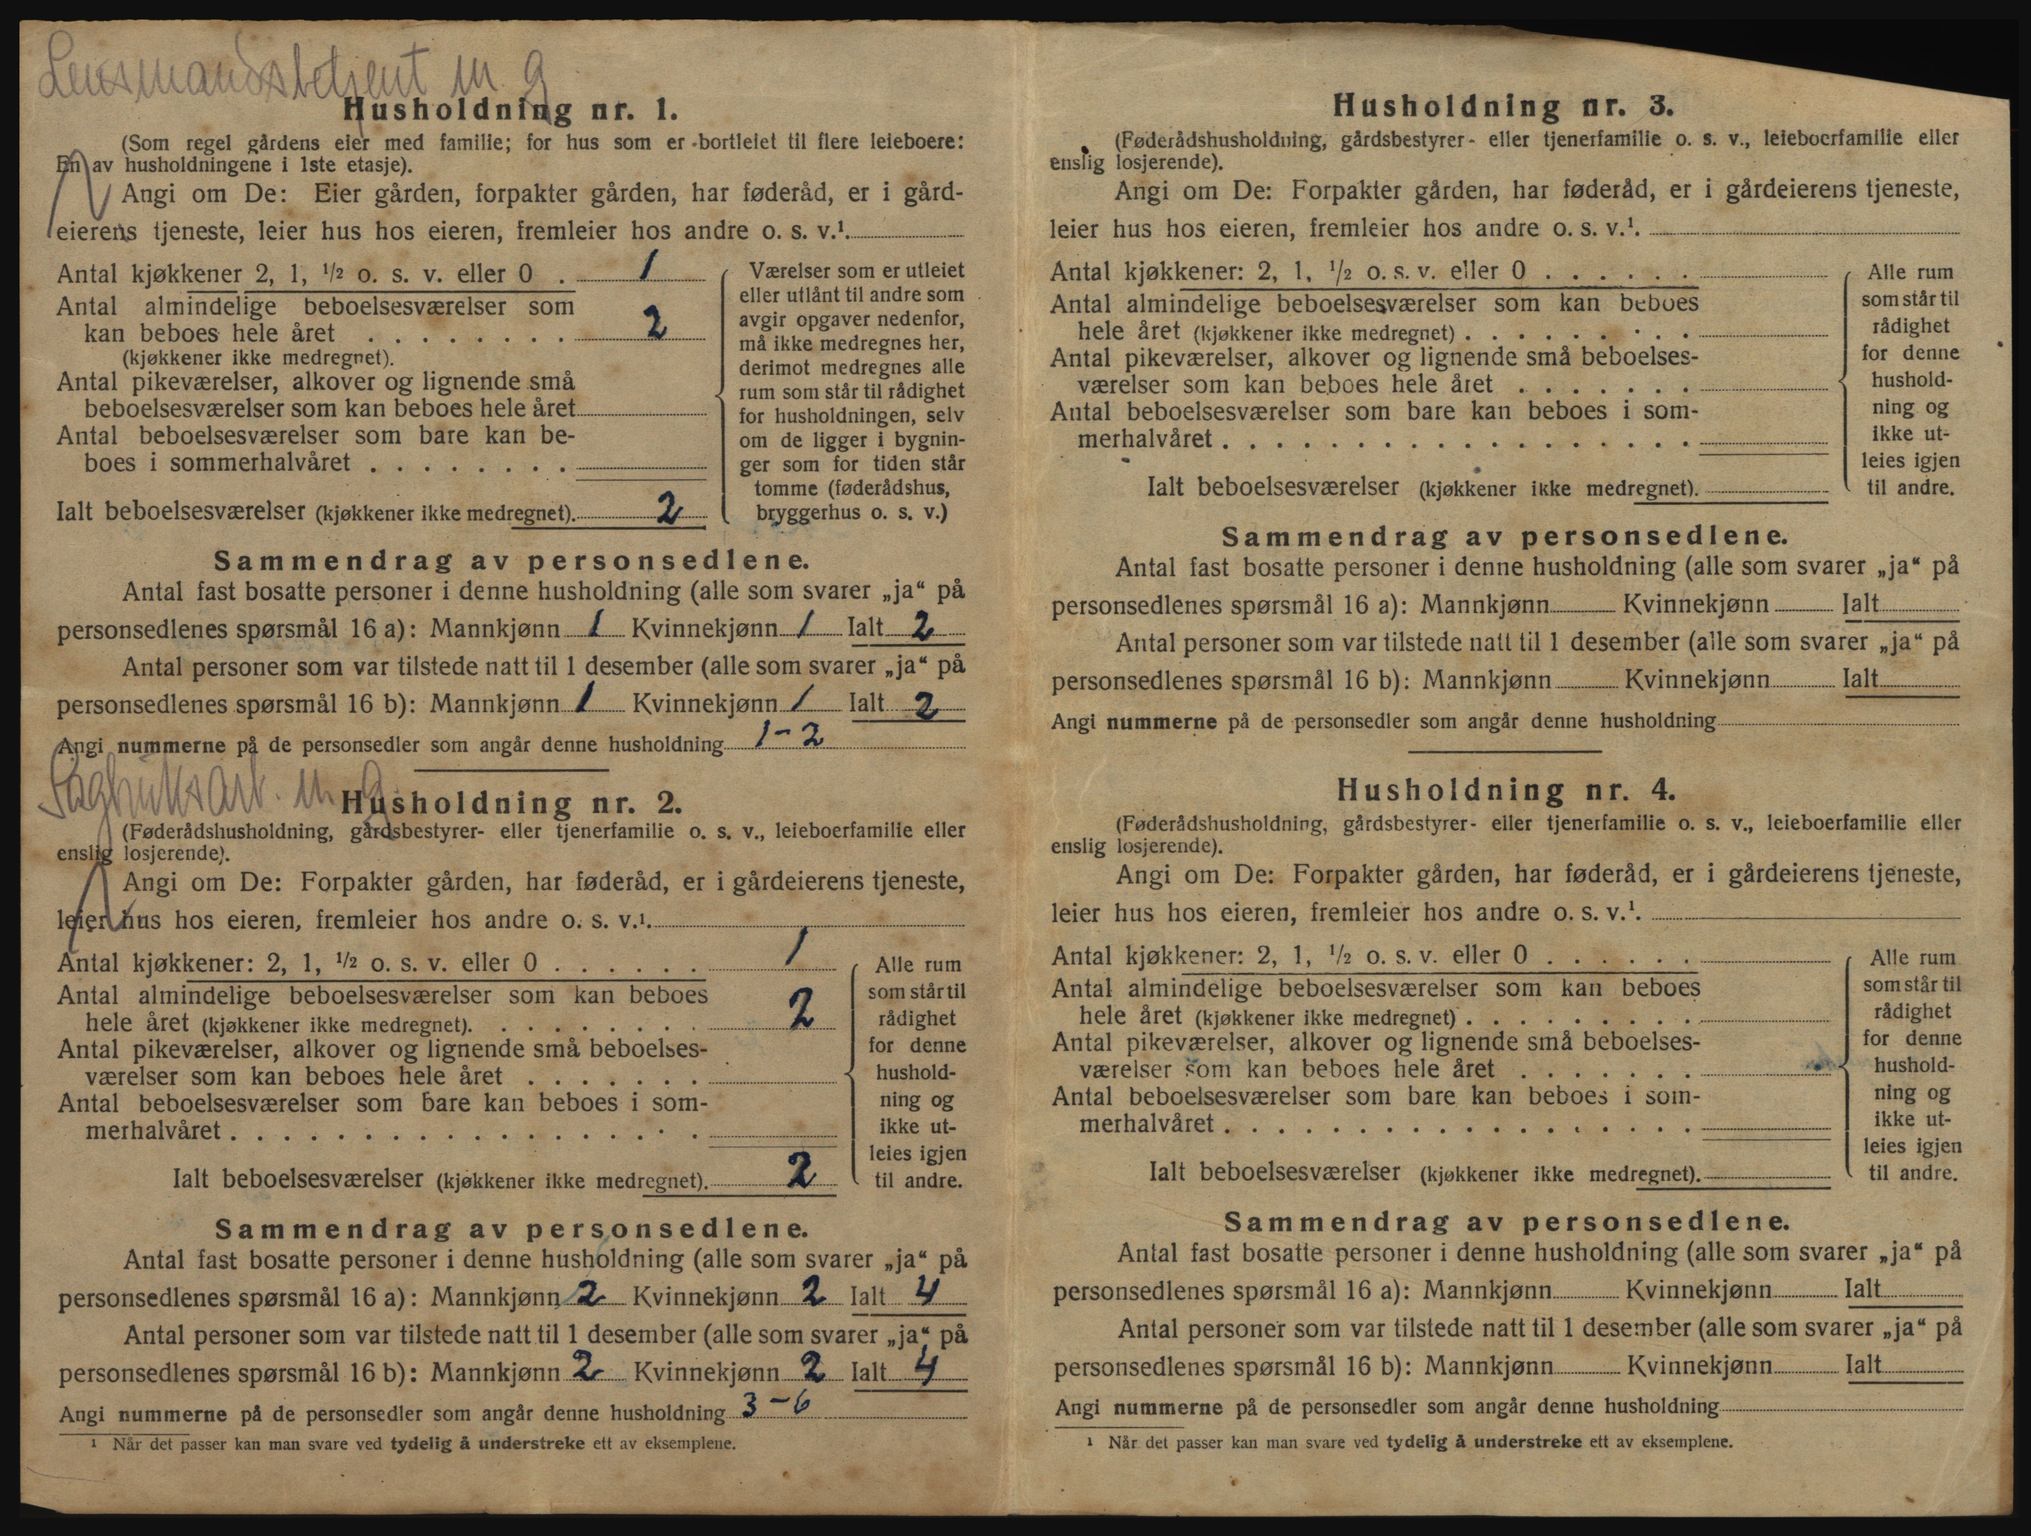 Lensmandsbetjent m g
Husholdning nr. 1.
(Som regel gårdens eier med familie; for hus som er bortleiet til flere leieboere:
En av husholdningene i 1ste etasje).
Angi om De: Eier gården, forpakter gården, har føderåd, er i gård-
eierens tjeneste, leier hus hos eieren, fremleier hos andre o. s. v.¹.
Antal kjøkkener 2, 1, ½ o. s. v. eller 0 . 1
Antal almindelige beboelsesværelser som
kan beboes hele året . . . . . . . . 2
(kjøkkener ikke medregnet).
Antal pikeværelser, alkover og lignende små
beboelsesværelser som kan beboes hele året
Antal beboelsesværelser som bare kan be-
boes i sommerhalvåret . . . . . . . .
Ialt beboelsesværelser (kjøkkener ikke medregnet). 2
Værelser som er utleiet
eller utlånt til andre som
avgir opgaver nedenfor,
må ikke medregnes her,
derimot medregnes alle
rum som står til rådighet
for husholdningen, selv
om de ligger i bygnin-
ger som for tiden står
tomme (føderådshus,
bryggerhus o. s. v.)
Sammendrag av personsedlene.
Antal fast bosatte personer i denne husholdning (alle som svarer „ja“ på
personsedlenes spørsmål 16 a): Mannkjønn 1 Kvinnekjønn 1 Ialt 2
Antal personer som var tilstede natt til 1 desember (alle som svarer „ja“ på
personsedlenes spørsmål 16 b): Mannkjønn 1 Kvinnekjønn 1 Ialt 2
Angi nummerne på de personsedler som angår denne husholdning 1-2
Sagbruksarb. m g.
Husholdning nr. 2.
(Føderådshusholdning, gårdsbestyrer- eller tjenerfamilie o. s. v., leieboerfamilie eller
enslig losjerende).
Angi om De: Forpakter gården, har føderåd, er i gårdeierens tjeneste,
leier hus hos eieren, fremleier hos andre o. s. v.¹.
Antal kjøkkener: 2, 1, ½ o. s. v. eller 0 . . . . . . 1
Antal almindelige beboelsesværelser som kan beboes
hele året (kjøkkener ikke medregnet). . . . . . . . . 2
Antal pikeværelser, alkover og lignende små beboelses-
værelser som kan beboes hele året . . . . . . .
Antal beboelsesværelser som bare kan beboes i som-
merhalvåret . . . . . . . . . . . . . . . . . .
Ialt beboelsesværelser (kjøkkener ikke medregnet). 2
Alle rum
som står til
rådighet
for denne
hushold-
ning og
ikke ut-
leies igjen
til andre.
Sammendrag av personsedlene.
Antal fast bosatte personer i denne husholdning (alle som svarer „ja“ på
personsedlenes spørsmål 16 a): Mannkjønn 2 Kvinnekjønn 2 Ialt 4
Antal personer som var tilstede natt til 1 desember (alle som svarer „ja“ på
personsedlenes spørsmål 16 b): Mannkjønn 2 Kvinnekjønn 2 Ialt 4
Angi nummerne på de personsedler som angår denne husholdning 3-6
¹ Når det passer kan man svare ved tydelig å understreke ett av eksemplene.
Husholdning nr. 3.
(Føderådshusholdning, gårdsbestyrer- eller tjenerfamilie o. s. v., leieboerfamilie eller
enslig losjerende).
Angi om De: Forpakter gården, har føderåd, er i gårdeierens tjeneste,
leier hus hos eieren, fremleier hos andre o. s. v.¹.
Antal kjøkkener: 2, 1, ½ o. s. v. eller 0 . . . . . .
Antal almindelige beboelsesværelser som kan beboes
hele året (kjøkkener ikke medregnet) . . . . . . . . .
Antal pikeværelser, alkover og lignende små beboelses-
værelser som kan beboes hele året . . . . . . .
Antal beboelsesværelser som bare kan beboes i som-
merhalvåret . . . . . . . . . . . . . . . . . .
Ialt beboelsesværelser (kjøkkener ikke medregnet).
Alle rum
som står til
rådighet
for denne
hushold-
ning og
ikke ut-
leies igjen
til andre.
Sammendrag av personsedlene.
Antal fast bosatte personer i denne husholdning (alle som svarer „ja“ på
personsedlenes spørsmål 16 a): Mannkjønn Kvinnekjønn Ialt
Antal personer som var tilstede natt til 1 desember (alle som svarer „ja“ på
personsedlenes spørsmål 16 b): Mannkjønn Kvinnekjønn Ialt
Angi nummerne på de personsedler som angår denne husholdning
Husholdning nr. 4.
(Føderådshusholdning, gårdsbestyrer- eller tjenerfamilie o. s. v., leieboerfamilie eller
enslig losjerende).
Angi om De: Forpakter gården, har føderåd, er i gårdeierens tjeneste,
leier hus hos eieren, fremleier hos andre o. s. v.¹.
Antal kjøkkener: 2, 1, ½ o. s. v. eller 0 . . . . . .
Antal almindelige beboelsesværelser som kan beboes
hele året (kjøkkener ikke medregnet) . . . . . . . . .
Antal pikeværelser, alkover og lignende små beboelses-
værelser som kan beboes hele året . . . . . . .
Antal beboelsesværelser som bare kan beboes i som-
merhalvåret . . . . . . . . . . . . . . . . . .
Ialt beboelsesværelser (kjøkkener ikke medregnet).
Alle rum
som står til
rådighet
for denne
hushold-
ning og
ikke ut-
leies igjen
til andre.
Sammendrag av personsedlene.
Antal fast bosatte personer i denne husholdning (alle som svarer „ja“ på
personsedlenes spørsmål 16 a): Mannkjønn Kvinnekjønn Ialt
Antal personer som var tilstede natt til 1 desember (alle som svarer „ja“ på
personsedlenes spørsmål 16 b): Mannkjønn Kvinnekjønn Ialt
Angi nummerne på de personsedler som angår denne husholdning
¹ Når det passer kan man svare ved tydelig å understreke ett av eksemplene.